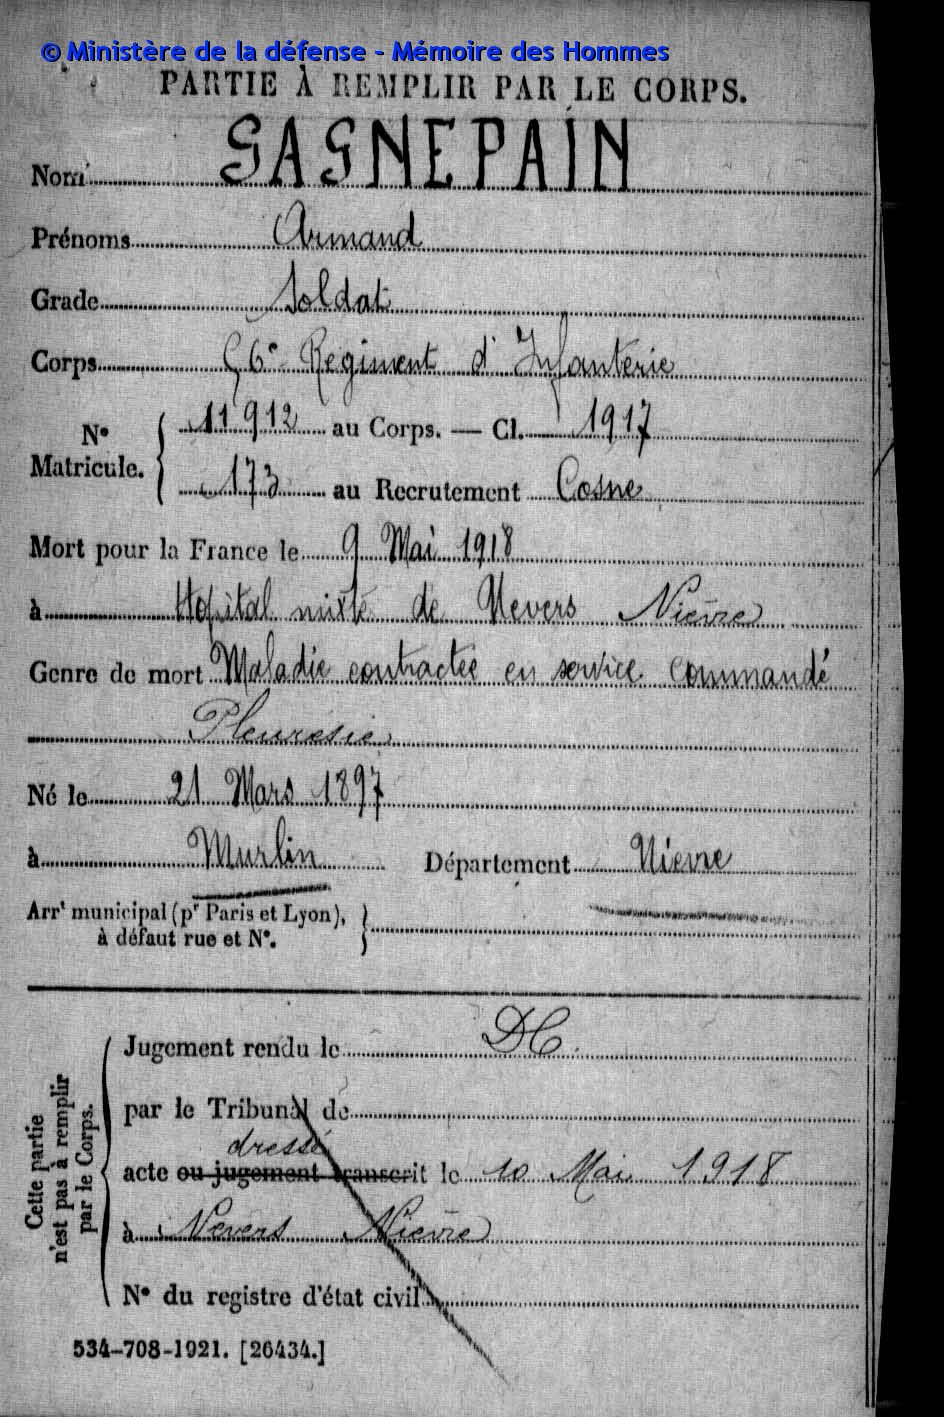 © Ministère de la défense - Mémoire des Hommes
PARTIE À REMPLIR PAR LE CORPS.
Nom GAGNEPAIN
Prénoms Armand
Grade Soldat
Corps 56e Régiment d'Infanterie
N° Matricule. { 11912 au Corps. — Cl. 1917
173 au Recrutement Cosne
Mort pour la France le 9 Mai 1918
à Hopital mixte de Nevers Nièvre
Genre de mort Maladie contractée en service commandé
Pleurésie
Né le 21 Mars 1897
à Murlin Département Nièvre
Arrt municipal (pr Paris et Lyon), }
à défaut rue et N°.
Cette partie
n'est pas à remplir
par le Corps.
Jugement rendu le DC.
par le Tribunal de
dressé
acte ou jugement transcrit le 10 Mai 1918
à Nevers Nièvre
N° du registre d'état civil
534-708-1921. [26434.]